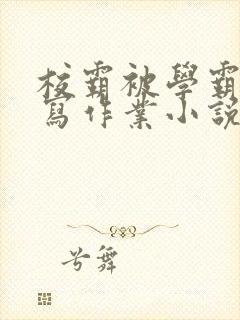 校霸被學霸
寫作業小說
兮舞